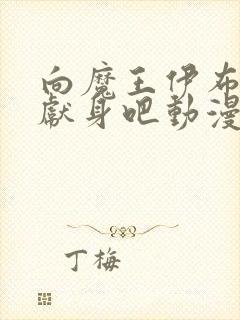 向魔王伊布
獻身吧動漫
丁梅